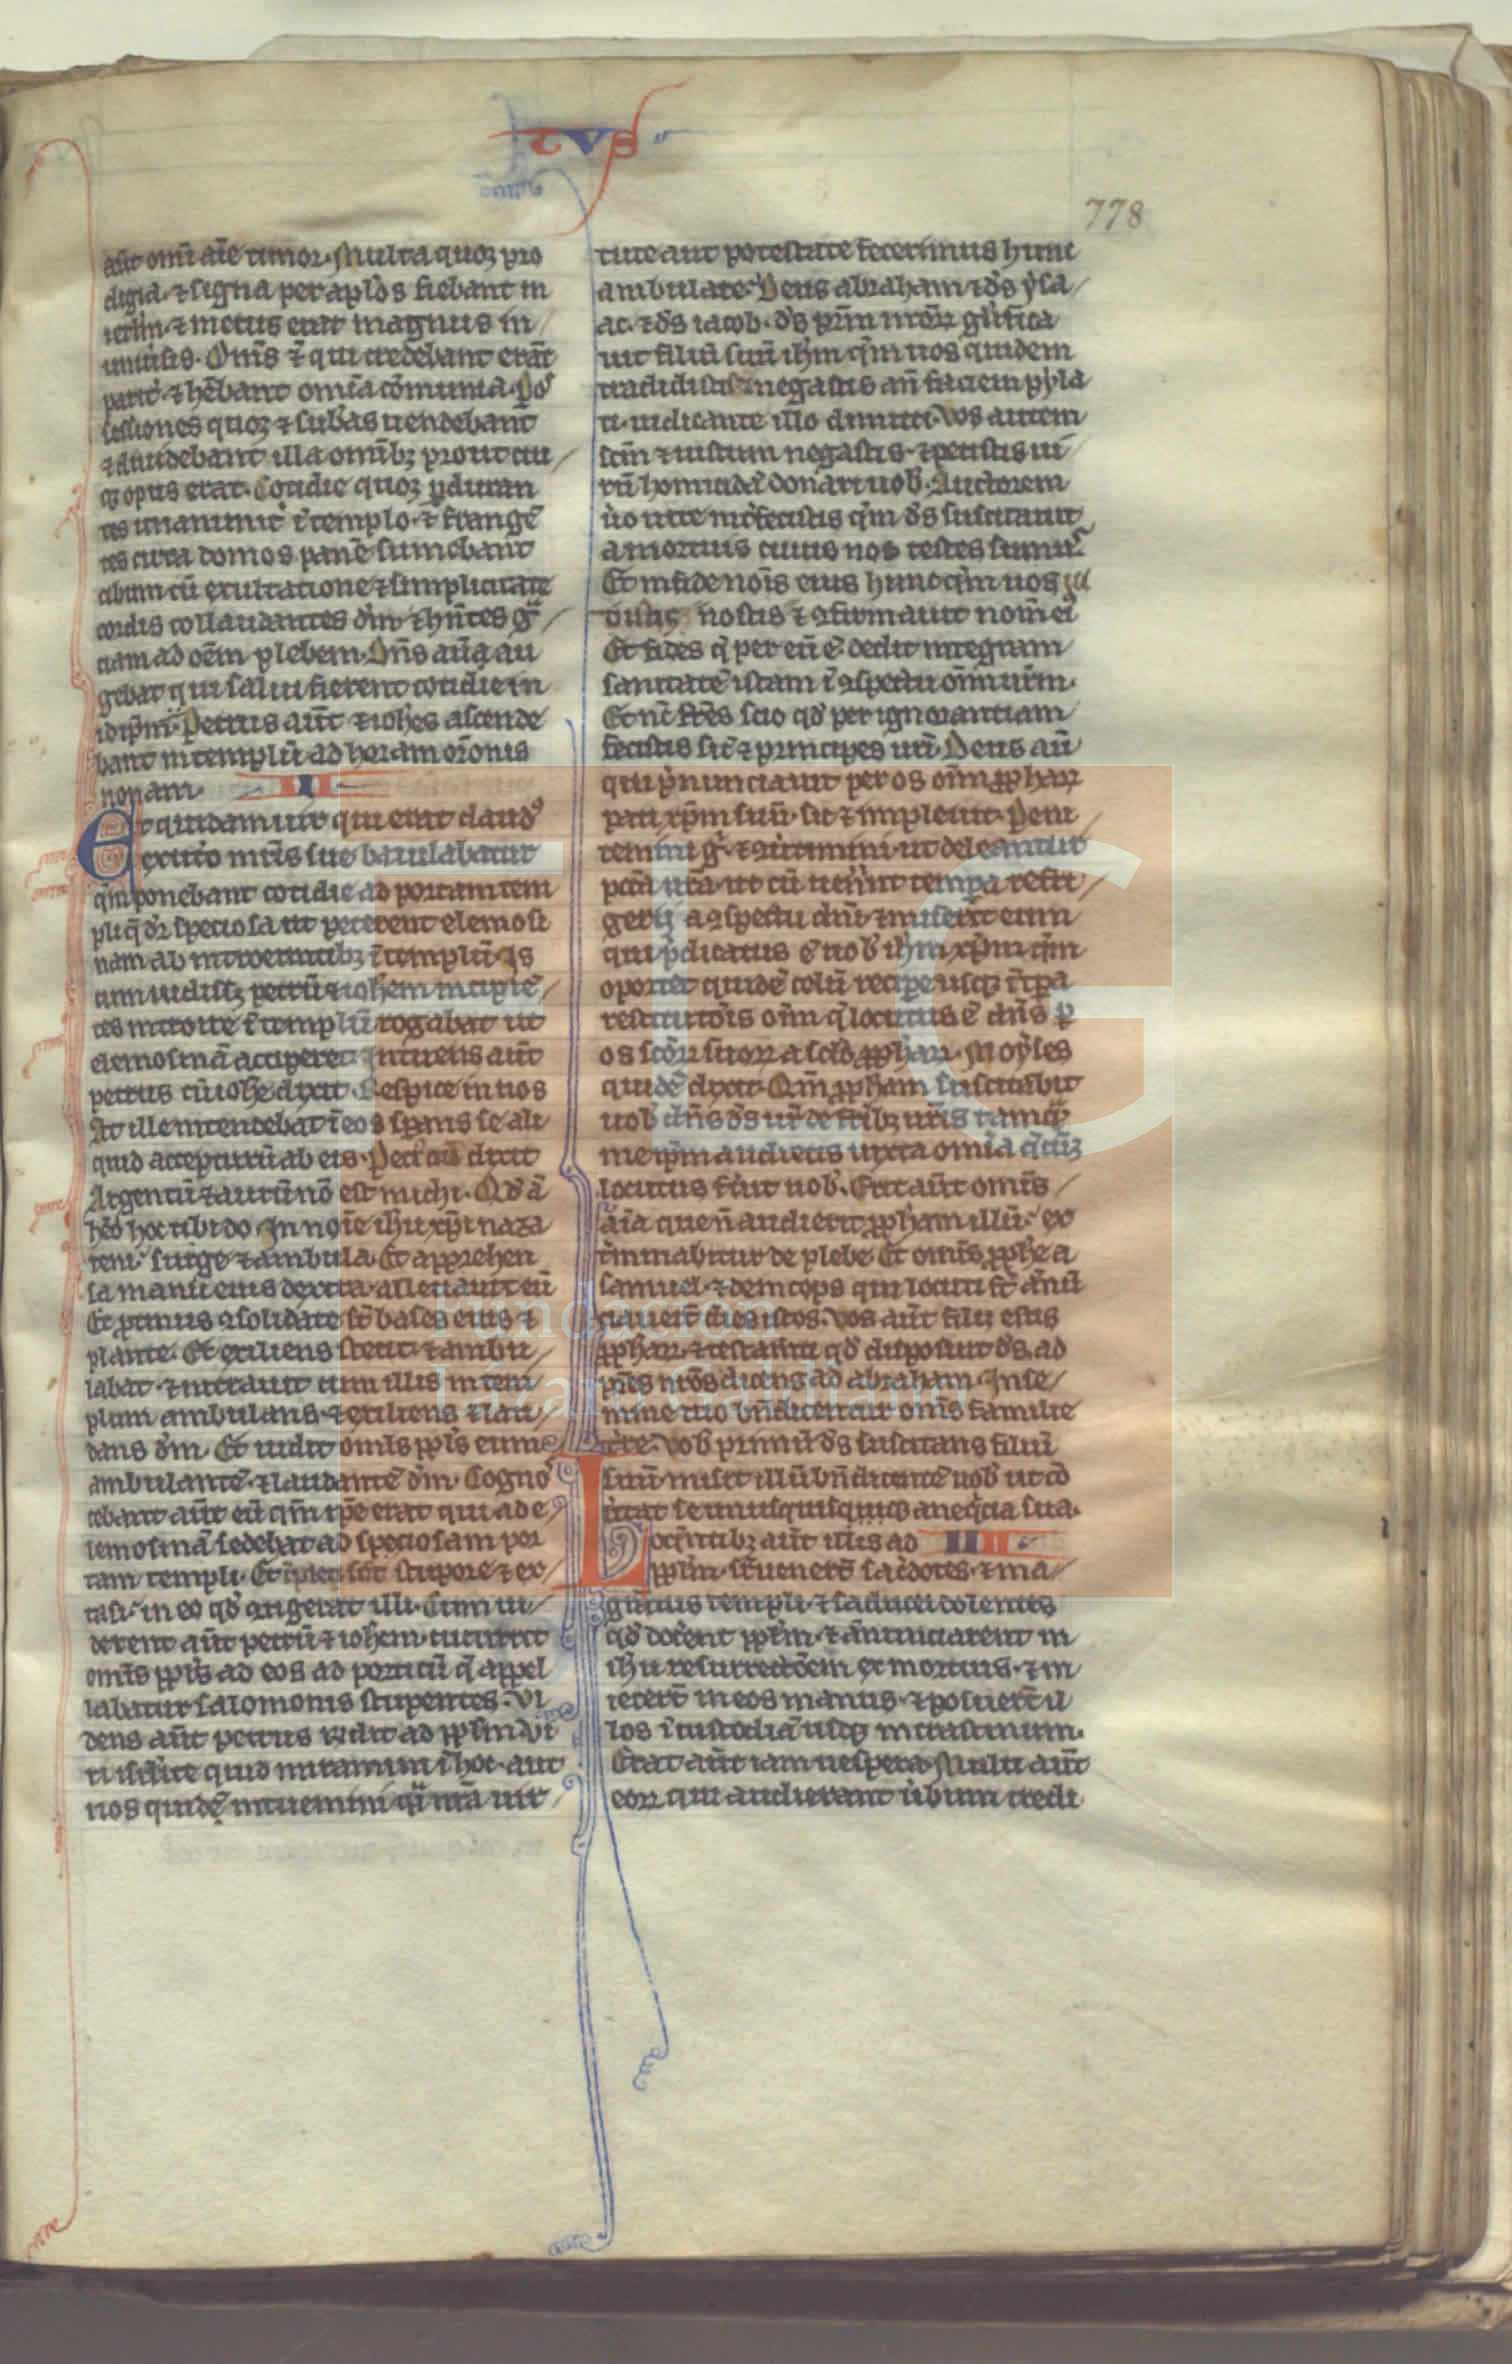 TVS
778
aūt om̄i aīe timor. Multa quoꝫ pro
digia. ⁊ signa per apl̓os fiebant in
ierl̄m. ⁊ metus erat magnus in
uniūsis. Om̄s ⁊̄ qui credebant erāt
parit̓. ⁊ hēbant om̄ia cōmunia. Pos
sessiones quoꝫ ⁊ sub̄as uendebant
⁊ diuidebant illa omībꝫ prout cui
qꝫ opus erat. Cotidie quoꝫ ꝑduran
tes unanimit̓ ī templo. ⁊ frangē
tes circa domos panē sumebant
cibum cū exultatione ⁊ simplicitate
cordis collaudantes dm̄ ⁊ hn̄tes gr̄a
ciam ad oēm plebem. Dn̄s aūt au
gebat qui salui fierent cotidie in
idip̄m. Petrus aūt ⁊ ioh̓es ascende
bant in templū ad horam or̄onis
nonam. II
Et quidam uir qui erat claud᷒
ex utō mr̄is sue baiulabatur
qm̄ ponebant cotidie ad portam tem
pli q̄ dr̄ speciosa ut peteret elemosi
nam ab introeuntibꝫ ī templū. Is
cum uidissꝫ petrū ⁊ ioh̓em incipiē
tes introire ī templū rogabat ut
elemosinā acciperet. Intuens aūt
petrus cū ioh̓e dixit. Respice in nos
At ille intendebat ī eos sperans se ali
quid accepturū ab eis. Petr᷒ aūt dixit
Argentū ⁊ aurū nō est michi. Qd̓ aū
hēo hoc tibi do. In noīe ih̓u xp̄i naza
reni. surge ⁊ ambula. Et apprehen
sa manu eius dextra. alleuauit eū
Et ꝓtinus ꝯsolidate st̄ bases eius ⁊
plante. Et exiliens stetit. ⁊ ambu
labat. ⁊ intrauit cum illis in tem
plum ambulans. ⁊ exiliens ⁊ lau
dans dm̄. Et uidit omīs ppl̓s eum
ambulantē. ⁊ laudantē dm̄. Cogno
scebant aūt eū qm̄ ip̄e erat qui ad e
lemosinā sedebat ad speciosam por
tam templi. Et īpleti sūt stupore ⁊ ex
tasi. in eo qd̓ ꝯtigerat illi. Cum ui
derent aūt petrū ⁊ ioh̓em. cucurrit
omīs ppl̓s ad eos ad porticū q̄ appel
labatur salomonis stupentes. Vi
dens aūt petrus r̄ndit ad ppl̓m. Vi
ri isrl̓ite quid miramini ī hoc. aut
nos quidē intuemini q̓i nr̄a uir
tute aut potestate fecerimus hunc
ambulare. Deus abraham ⁊ ds̓ ysa
ac. ⁊ ds̓ iacob. ds̓ pr̄m nr̄oꝝ gl̓ifica
uit filiū suū ih̓m qm̄ uos quidem
tradidistis ⁊ negastis an̄ faciem pyla
ti. iudicante illo dimitti. Vos autem
scm̄ ⁊ iustum negastis. ⁊ petistis ui
rū homicidā donari uob̓. Auctorem
ūo uite int̓fecistis qm̄ ds̓ suscitauit
a mortuis cuius nos testes sumus
Et in fide noīs eius hunc qm̄ uos ui
distis ⁊ nostis ꝯfirmauit nom̄ ei᷒
Et fides q̄ per eū ē. dedit integram
sanitatē istam ī ꝯspectu oīm ur̄m.
Et nc̄ frēs scio qd̓ per ignorantiam
fecistis sic̄ ⁊ principes ur̄i. Deus aūt
qui p̄nunciauit per os oīm ꝓphaꝝ
pati xp̄m suū. sic ⁊ impleuit. Peni
temini gͦ. ⁊ ꝯūtimini. ut deleantur
pctā ur̄a. ut cū uen̄int tempa refri
gerij a ꝯspectu dn̄i. ⁊ miserit eum
qui p̄dicatus ē uob̓ ih̓m xp̄m. qm̄
oportet quidē celū recipe usqꝫ ī tp̄a
restitutōis oīm q̄ locutus ē dn̄s ꝑ
os scōꝝ suoꝝ a sclo̓ ꝓph̓aꝝ. Moyses
quidē dixit. Qm̄ ꝓph̓am suscitabit
uob̓ dn̄s ds̓ ur̄ de frībꝫ ur̄is tamqͣ
me ip̄m audietis iuxta om̄ia q̄cūꝫ
locutus fūit uob̓. Erit aūt omīs
aīa que n̄ audierit ꝓph̓am illū. ex
t̓minabitur de plebe. Et omīs ꝓph̓e a
samuel. ⁊ deinceps qui locuti st̄ ānū
ciauert̄ dies istos. Vos aūt filij estis
ꝓph̓aꝝ. ⁊ testam̄ti qd̓ disposuit ds̓. ad
pr̄es nr̄os dicens ad abraham. In se
mine tuo bn̄dicentur om̄s familie
t̓re. Vob̓ primū ds̓ suscitans filiū
suū. misit illū bn̄dicentē uob̓ ut cō
ūtat se unusquisquis a neq̄cia sua.
Loq̄ntibꝫ aūt illis ad III
ppl̓m. sr̄uenert̄ sac̓dotes. ⁊ ma
gr̄atus templi. ⁊ saducei dolentes
qd̓ docerent ppl̓m. ⁊ ānunciarent in
ih̓u resurrectōem ex mortuis. ⁊ in
iecert̄ in eos manus. ⁊ posuert̄ il
los ī custodiā usqꝫ in crastinum.
Erat aūt iam uespera. Multi aūt
eoꝝ qui audierant ūbum credi
FLG
Fundación
Lázaro Galdiano